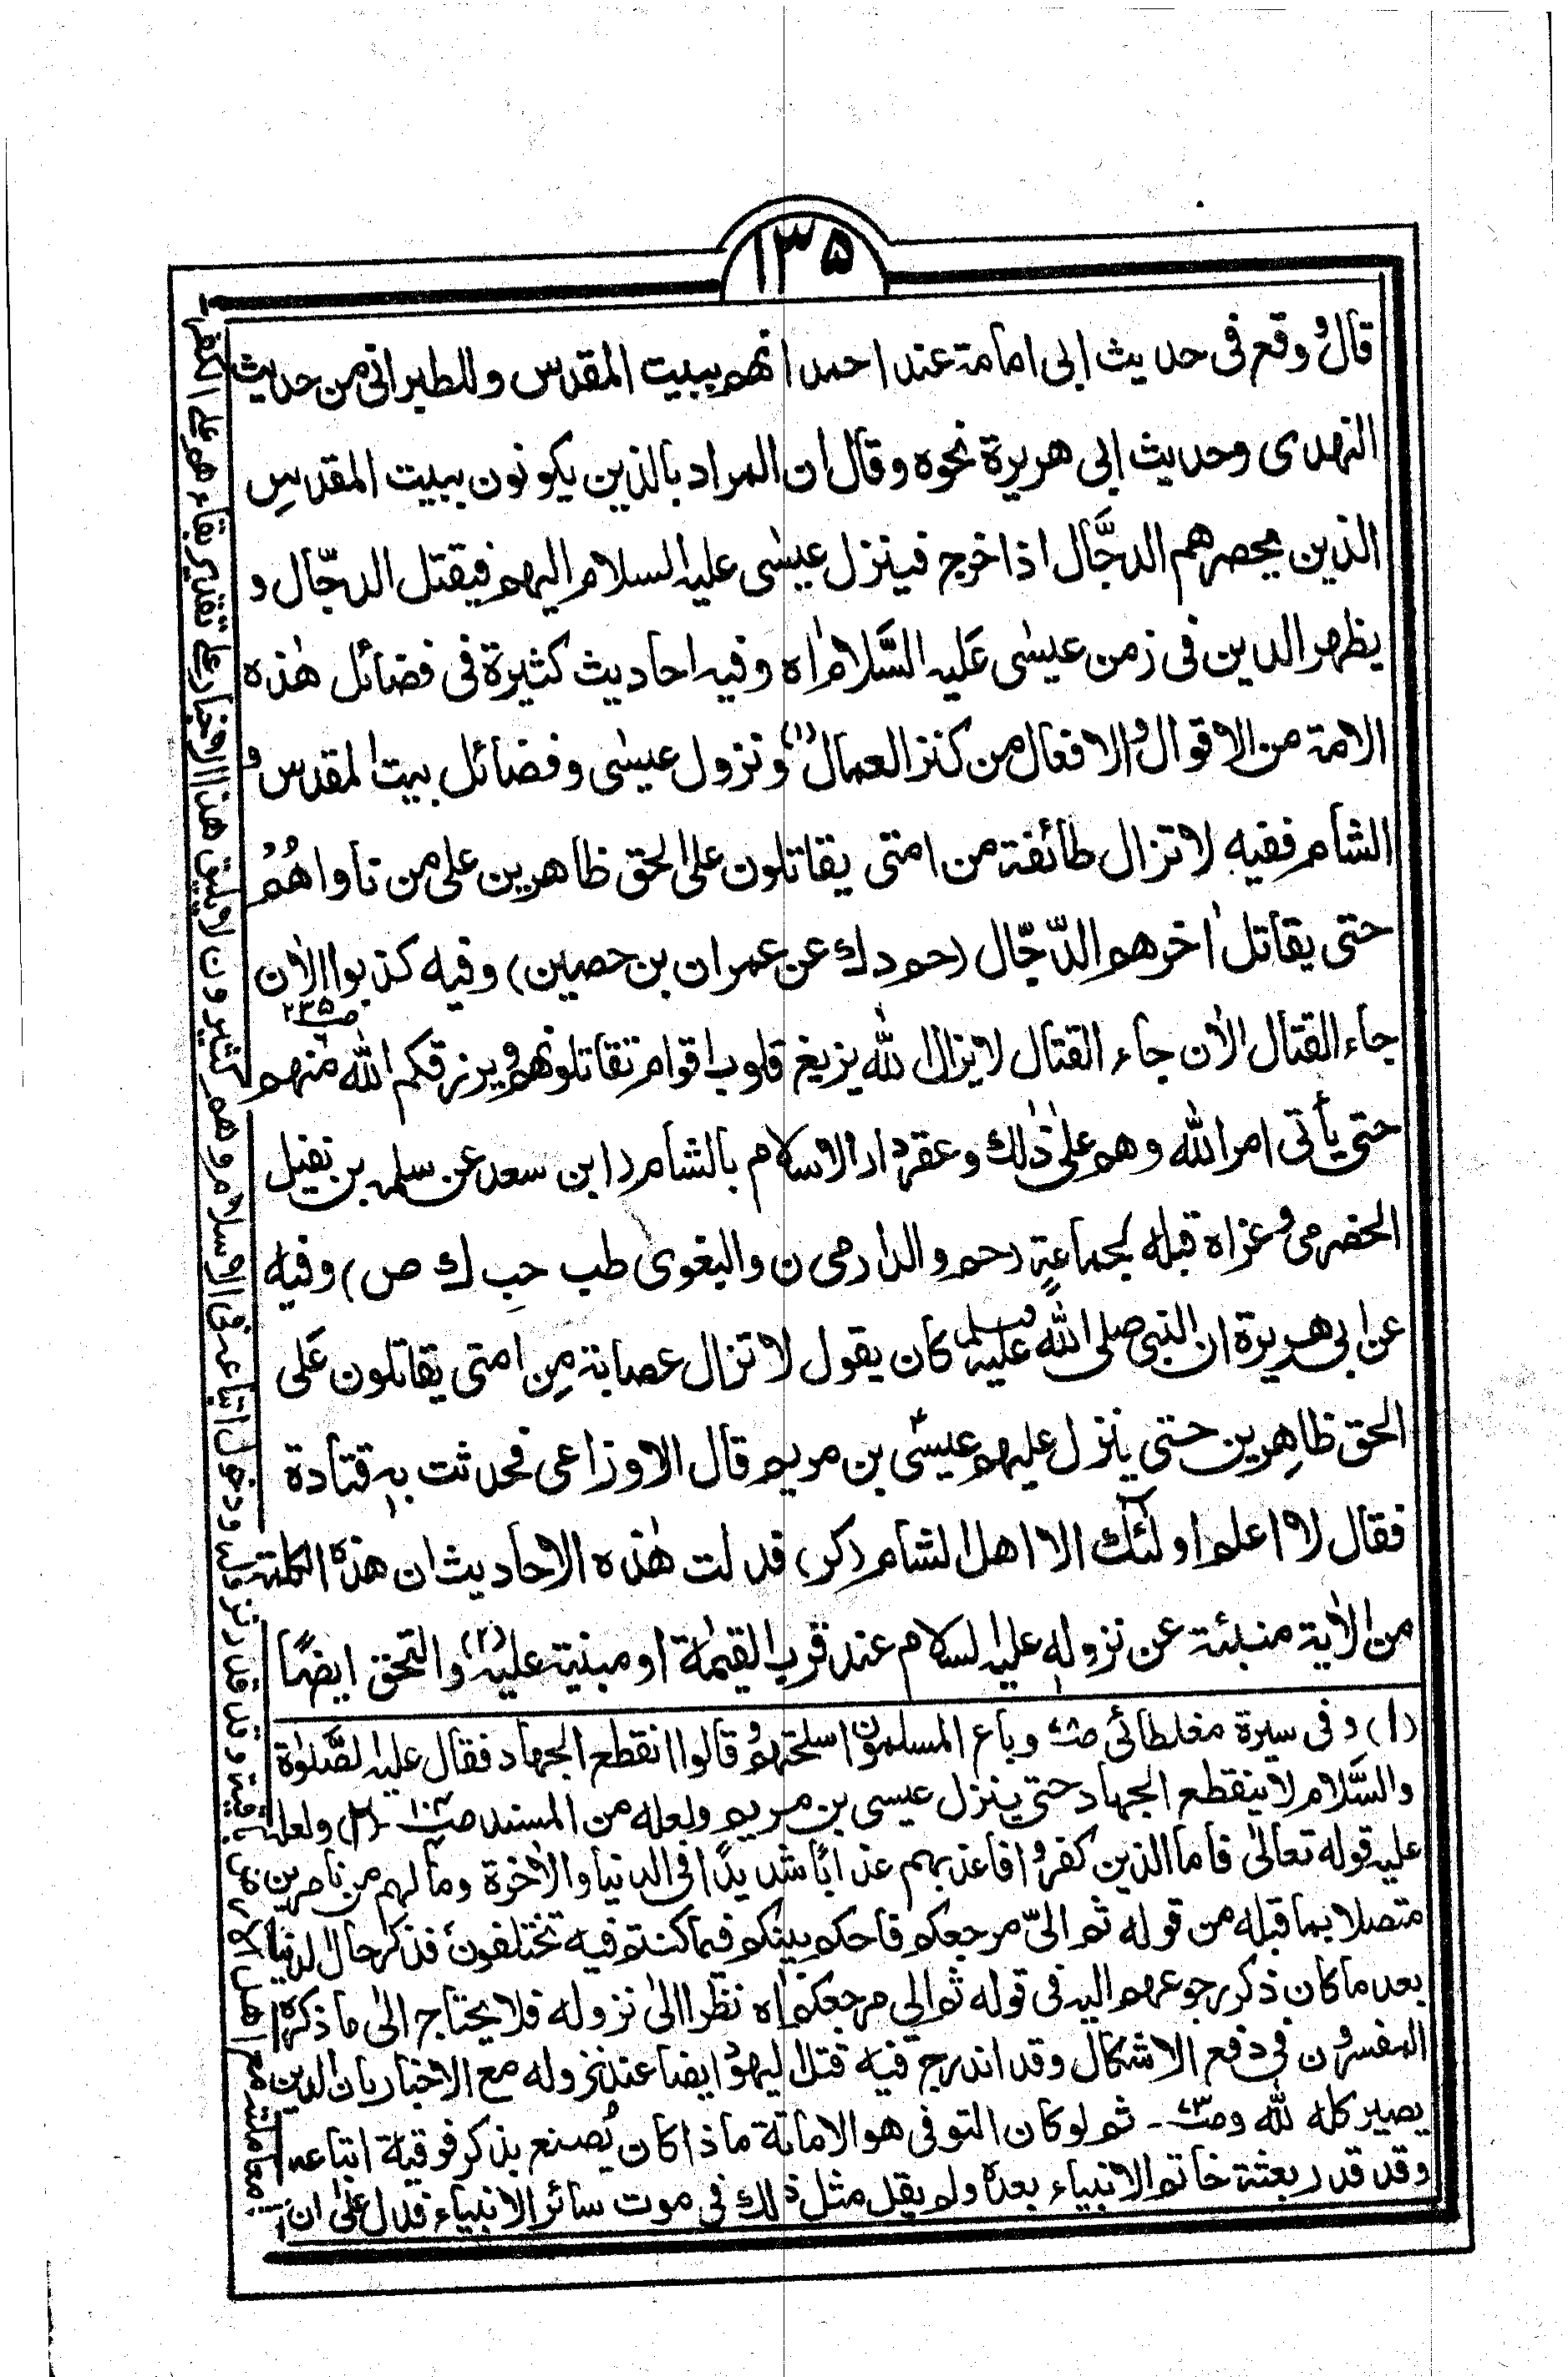 ١٣٥
قال ووقع فی حدیث ابی امامة عند احمد انهم ببیت المقدس وللطبرانی من حدیث
النهدی وحدیث ابی هریرة نحوه وقال ان المراد بالذین یکونون ببیت المقدسِ
الذین یحصرهم الدجَّال اذا خرج فینزل عیسٰی علیه السلام الیهم فیقتل الدجّال و
یظهر الدین فی زمن عیسٰی عَلیه السَّلام اه وفیه احادیث کثیرة فی فضائل هٰذه
الامة من الاقوال والافعال من کنز العمال (١) ونزول عیسٰی وفضائل بیت المقدس و
الشام ففیه لا تزال طائفة من امتی یقاتلون علی الحق ظاهرین علی من ناواهُمُ
حتی یقاتل اٰخرهم الدّجّال (حم د ك عن عمران بن حصین) وفیه کذبوا الاٰن
جاء القتال الاٰن جاء القتال لا یزال الله یزیغ قلوب اقوام تقاتلونهم ویرزقکم الله منهم ص ٢٣٥
حتی یأتی امر الله وهم علٰی ذٰلك وعقر دار الاسلام بالشام (ابن سعد عن سلمه بن نفیل
الحضرمی وعزاه قبله لجماعةٍ (حم والدارمی ن والبغوی طب حبِ ك ص) وفیه
عن ابی هریرة ان النبی صلی الله علیه وسلم کان یقول لا تزال عصابة مِن امتی یقاتلون عَلی
الحق ظاهِرین حتی ینزل علیهم عیسٰی بن مریم قال الاوزاعی فحدثت به قتادة
فقال لا اعلم اولٰئك الا اهل الشام (کر) فدلت هٰذه الاحادیث ان هذه الکلمة
من الاٰیة منبئة عن نزوله علیه السلام عند قرب القیٰمة او مبنیة علیه (٢) والتحق ایضًا
(١) وفی سیرة مغلطائی وباع المسلمون اسلحتهم وقالوا انقطع الجهاد فقال علیه الصَّلوٰة
والسَّلام لا ینقطع الجهاد حتی ینزل عیسی بن مریم ولعله من المسند (٢) ولعله
علیه قوله تعالٰی فاما الذین کفروا فاعذبهم عذابًا شدیدًا فی الدنیا والاٰخرة وما لهم من ناصرین
متصلا بما قبله من قوله ثم الیّ مرجعکم فاحکم بینکم فیما کنتم فیه تختلفون فذکر حال الدنیا
بعد ما کان ذکر رجوعهم الیه فی قوله ثم الی مرجعکم اه نظرا الٰی نزوله فلا یحتاج الٰی ما ذکره
المفسرون فی دفع الاشکال وقد اندرج فیه قتل الیهود ایضا عند نزوله مع الاخبار بان الدین
یصیر کله لله ثم لو کان التوفی هو الاماتة ماذا کان یُصنع بذکر فوقیة اتباعه
وقد قدر بعثة خاتم الانبیاء بعده ولم یقل مثل ذٰلك فی موت سائر الانبیاء فدل علٰی ان
معاملته مع اهل الارض باقیة وقد قدر نزوله ودخول اتباعه فی الاسلام وهم کثیرون لا یلیق هذا الاخبار علی تقدیر بقاء هم علی الکفر